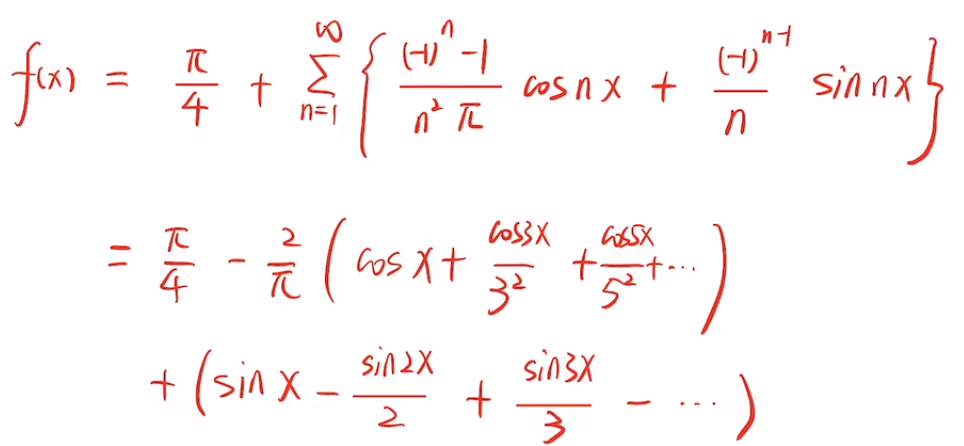 f(x) = π/4 + ∑_{n=1}^{∞} { ((-1)^n - 1)/(n² π) cos n x + (-1)^{n-1}/n sin n x }
= π/4 - 2/π ( cos x + cos3x/3² + cos5x/5² + ··· )
+ ( sin x - sin2x/2 + sin3x/3 - ··· )